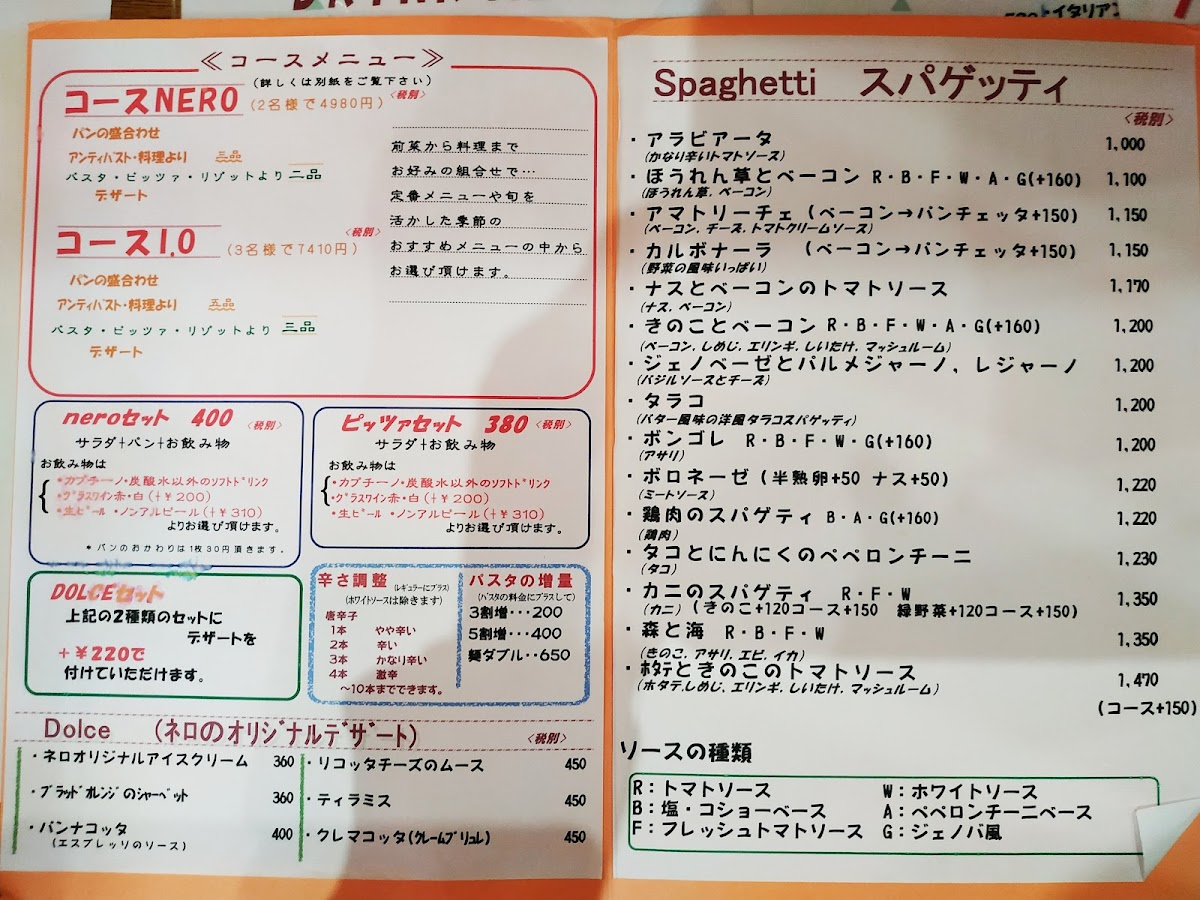 ≪コースメニュー≫
(詳しくは別紙をご覧下さい)
コースNERO (2名様で4980円) <税別>
パンの盛合わせ
アンティパスト・料理より 三品
パスタ・ピッツァ・リゾットより 二品
デザート
コース1,0 (3名様で7410円) <税別>
パンの盛合わせ
アンティパスト・料理より 五品
パスタ・ピッツァ・リゾットより 三品
デザート
前菜から料理まで
お好みの組合せで…
定番メニューや旬を
活かした季節の
おすすめメニューの中から
お選び頂けます。
neroセット 400 <税別>
サラダ+パン+お飲み物
お飲み物は
・カプチーノ・炭酸水以外のソフトドリンク
・グラスワイン赤・白(+￥200)
・生ビール ・ノンアルビール(+￥310)
よりお選び頂けます。
* パンのおかわりは1枚30円頂きます。
ピッツァセット 380 <税別>
サラダ+お飲み物
お飲み物は
・カプチーノ・炭酸水以外のソフトドリンク
・グラスワイン赤・白(+￥200)
・生ビール ・ノンアルビール(+￥310)
よりお選び頂けます。
DOLCEセット
上記の2種類のセットに
デザートを
+￥220で
付けていただけます。
辛さ調整 (レギュラーにプラス)
(ホワイトソースは除きます)
唐辛子
1本 やや辛い
2本 辛い
3本 かなり辛い
4本 激辛
～10本までできます。
パスタの増量
(パスタの料金にプラスして)
3割増・・・200
5割増・・・400
麺ダブル・・650
Dolce (ネロのオリジナルデザート) <税別>
・ネロオリジナルアイスクリーム 360
・ブラッドオレンジのシャーベット 360
・パンナコッタ 400
(エスプレッソのソース)
・リコッタチーズのムース 450
・ティラミス 450
・クレマコッタ(クレームブリュレ) 450
Spaghetti スパゲッティ
<税別>
・アラビアータ 1,000
(かなり辛いトマトソース)
・ほうれん草とベーコン R・B・F・W・A・G(+160) 1,100
(ほうれん草、ベーコン)
・アマトリーチェ (ベーコン→パンチェッタ+150) 1,150
(ベーコン、チーズ、トマトクリームソース)
・カルボナーラ (ベーコン→パンチェッタ+150) 1,150
(野菜の風味いっぱい)
・ナスとベーコンのトマトソース 1,170
(ナス、ベーコン)
・きのことベーコン R・B・F・W・A・G(+160) 1,200
(ベーコン、しめじ、エリンギ、しいたけ、マッシュルーム)
・ジェノベーゼとパルメジャーノ、レジャーノ 1,200
(バジルソースとチーズ)
・タラコ 1,200
(バター風味の洋風タラコスパゲッティ)
・ボンゴレ R・B・F・W・G(+160) 1,200
(アサリ)
・ボロネーゼ (半熟卵+50 ナス+50) 1,220
(ミートソース)
・鶏肉のスパゲティ B・A・G(+160) 1,220
(鶏肉)
・タコとにんにくのペペロンチーニ 1,230
(タコ)
・カニのスパゲティ R・F・W 1,350
(カニ) (きのこ+120コース+150 緑野菜+120コース+150)
・森と海 R・B・F・W 1,350
(きのこ、アサリ、エビ、イカ)
・ホタテときのこのトマトソース 1,470
(ホタテ、しめじ、エリンギ、しいたけ、マッシュルーム)
(コース+150)
ソースの種類
R：トマトソース W：ホワイトソース
B：塩・コショーベース A：ペペロンチーニベース
F：フレッシュトマトソース G：ジェノバ風